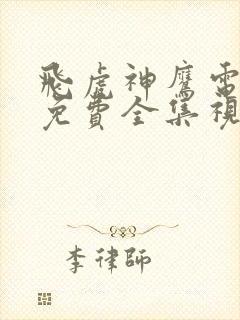 飛虎神鷹電
免費全集視
李律師